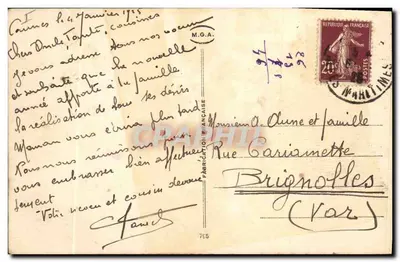 Cannes, le 4 Janvier 1925
Chers Oncle, Tante, cousines
Je vous adresse tous nos vœux
et souhaite que la nouvelle
année apporte à la famille
la réalisation de tous ses désirs
Maman vous écrira plus tard
Nous nous réunissons pour
vous embrasser bien affectueu
sement
Votre neveu et cousin dévoué
M.G.A.
FABRICATION FRANÇAISE
REPUBLIQUE FRANÇAISE
20c
POSTES
MARITIMES
Monsieur A. et famille
Rue Cariamette
Brignolles
(Var)